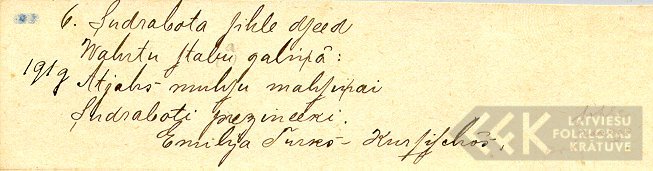 6. Sudrabota sihle dseed
Wahrtu stabu galeņâ:
1919 Atjahs muhsu mahsiņai
Sudraboti prezineeki.
Emilija Turks - Kursischôs,
LATVIEŠU
FOLKLORAS
KRĀTUVE